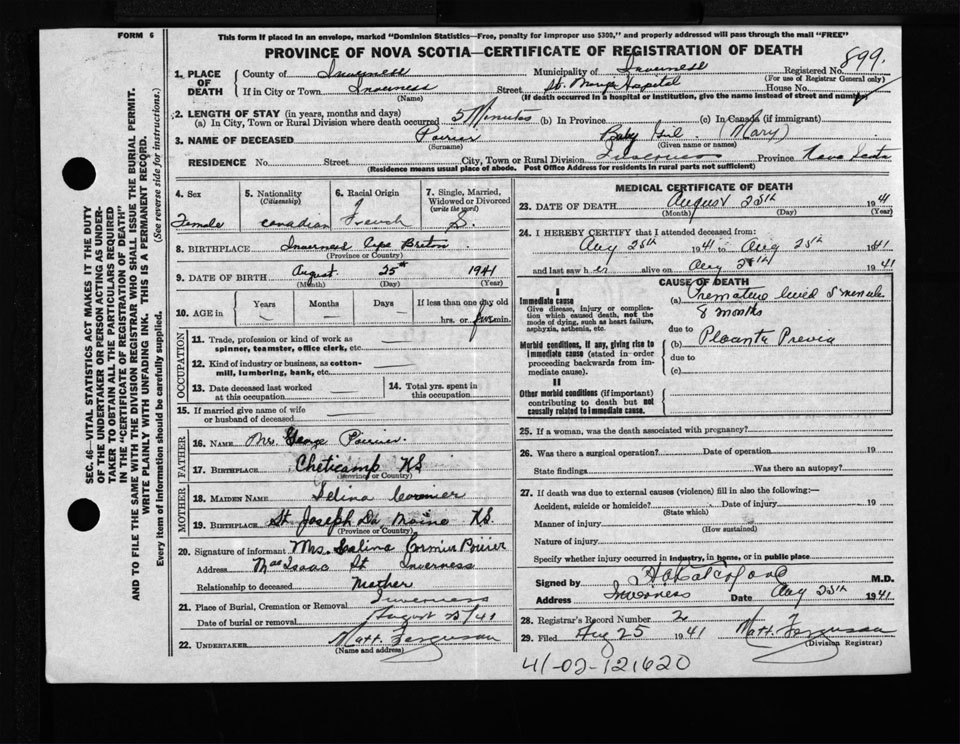 FORM 6
This form if placed in an envelope, marked "Dominion Statistics—Free, penalty for improper use $300," and properly addressed will pass through the mail "FREE"
PROVINCE OF NOVA SCOTIA—CERTIFICATE OF REGISTRATION OF DEATH
Registered No. 899.
(For use of Registrar General only)
1. PLACE OF DEATH
County of Inverness Municipality of Inverness
If in City or Town Inverness Street St. Mary's Hospital House No.
(Name) (If death occurred in a hospital or institution, give the name instead of street and number)
2. LENGTH OF STAY (in years, months and days)
(a) In City, Town or Rural Division where death occurred 5 Minutes (b) In Province (c) In Canada (if immigrant)
3. NAME OF DECEASED Poirier Baby Girl (Mary)
(Surname) (Given name or names)
RESIDENCE No. Street City, Town or Rural Division Inverness Province Nova Scotia
(Residence means usual place of abode. Post Office Address for residents in rural parts not sufficient)
4. Sex
Female
5. Nationality
(Citizenship)
Canadian
6. Racial Origin
French
7. Single, Married, Widowed or Divorced
(write the word)
S.
8. BIRTHPLACE Inverness Cape Breton
(Province or Country)
9. DATE OF BIRTH August 25th 1941
(Month) (Day) (Year)
10. AGE Years Months Days If less than one day old
hrs. or five min.
OCCUPATION
11. Trade, profession or kind of work as
spinner, teamster, office clerk, etc.
12. Kind of industry or business, as cotton-
mill, lumbering, bank, etc.
13. Date deceased last worked
at this occupation
14. Total yrs. spent in
this occupation
15. If married give name of wife
or husband of deceased
FATHER
16. NAME Mr. George Poirier
17. BIRTHPLACE Cheticamp NS
(Province or Country)
MOTHER
18. MAIDEN NAME Selina Cormier
19. BIRTHPLACE St. Joseph Du Moine NS.
(Province or Country)
20. Signature of informant Mrs. Salina Cormier Poirier
Address MacIsaac St Inverness
Relationship to deceased Mother
21. Place of Burial, Cremation or Removal Inverness
Date of burial or removal August 25/41
22. UNDERTAKER Matt. Ferguson
(Name and address)
MEDICAL CERTIFICATE OF DEATH
23. DATE OF DEATH August 25th 1941
(Month) (Day) (Year)
24. I HEREBY CERTIFY that I attended deceased from:
Aug 25th 1941 to Aug 25th 1941
and last saw her alive on Aug 25th 1941
CAUSE OF DEATH
I
Immediate cause
Give disease, injury or complication which caused death, not the mode of dying, such as heart failure, asphyxia, asthenia, etc.
(a) Premature lived 5 minutes
8 months
due to
Morbid conditions, if any, giving rise to immediate cause (stated in order proceeding backwards from immediate cause).
(b) Placenta Previa
due to
(c)
II
Other morbid conditions (if important) contributing to death but not causally related to immediate cause.
25. If a woman, was the death associated with pregnancy?
26. Was there a surgical operation? Date of operation 19
State findings Was there an autopsy?
27. If death was due to external causes (violence) fill in also the following:—
Accident, suicide or homicide? Date of injury 19
(State which)
Manner of injury
(How sustained)
Nature of injury
Specify whether injury occurred in industry, in home, or in public place
Signed by M.D.
Address Inverness Date Aug 25th 1941
28. Registrar's Record Number 2
29. Filed Aug 25 1941 Matt. Ferguson
(Division Registrar)
41-02-121620
SEC. 46—VITAL STATISTICS ACT MAKES IT THE DUTY
OF THE UNDERTAKER OR PERSON ACTING AS UNDER-
TAKER TO OBTAIN ALL THE PARTICULARS REQUIRED
IN THE "CERTIFICATE OF REGISTRATION OF DEATH"
AND TO FILE THE SAME WITH THE DIVISION REGISTRAR WHO SHALL ISSUE THE BURIAL PERMIT.
WRITE PLAINLY WITH UNFADING INK. THIS IS A PERMANENT RECORD.
Every item of information should be carefully supplied. (See reverse side for instructions.)